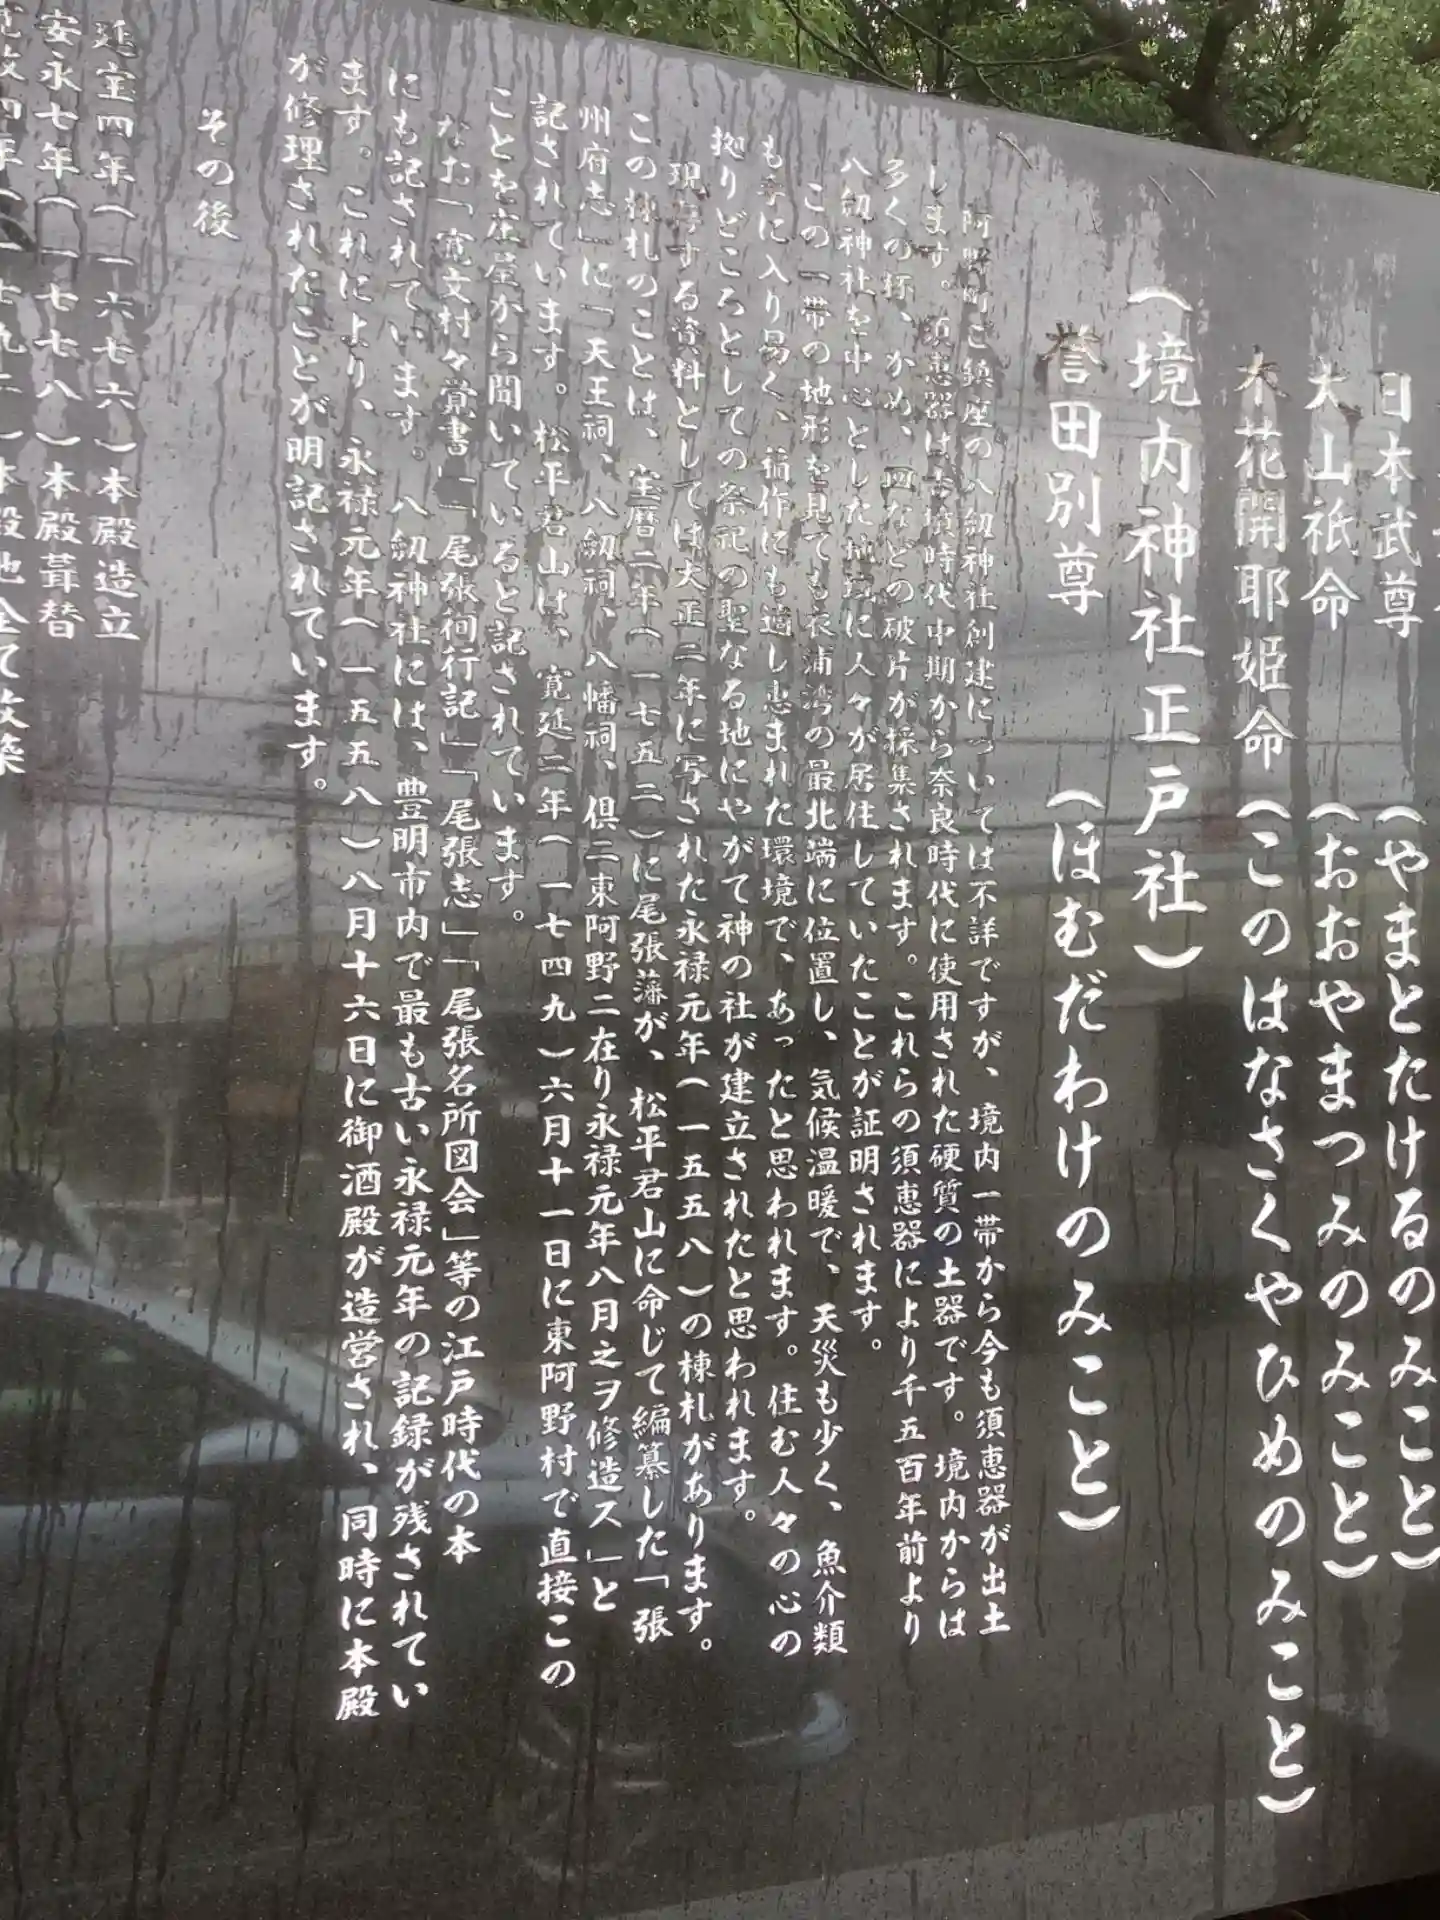 日本武尊 (やまとたけるのみこと)
大山祇命 (おおやまつみのみこと)
木花開耶姫命 (このはなさくやひめのみこと)
(境内神社正戸社)
誉田別尊 (ほむだわけのみこと)
阿野町ご鎮座の八剱神社創建については不詳ですが、境内一帯から今も須恵器が出土
します。須恵器は古墳時代中期から奈良時代に使用された硬質の土器です。境内からは
多くの坏、かめ、皿などの破片が採集されます。これらの須恵器により千五百年前より
八剱神社を中心とした地域に人々が居住していたことが証明されます。
この一帯の地形を見ても衣浦湾の最北端に位置し、気候温暖で、天災も少く、魚介類
も手に入り易く、稲作にも適し恵まれた環境で、あったと思われます。住む人々の心の
拠りどころとしての祭祀の聖なる地にやがて神の社が建立されたと思われます。
現存する資料としては大正二年に写された永禄元年(一五五八)の棟札があります。
この棟札のことは、宝暦二年(一七五二)に尾張藩が、松平君山に命じて編纂した「張
州府志」に「天王祠、八剱祠、八幡祠、倶二東阿野二在り永禄元年八月之ヲ修造ス」と
記されています。松平君山は、寛延二年(一七四九)六月十一日に東阿野村で直接この
ことを庄屋から聞いていると記されています。
なお「寛文村々覚書」「尾張徇行記」「尾張志」「尾張名所図会」等の江戸時代の本
にも記されています。八剱神社には、豊明市内で最も古い永禄元年の記録が残されてい
ます。これにより、永禄元年(一五五八)八月十六日に御酒殿が造営され、同時に本殿
が修理されたことが明記されています。
その後
延宝四年(一六七六)本殿造立
安永七年(一七七八)本殿葺替